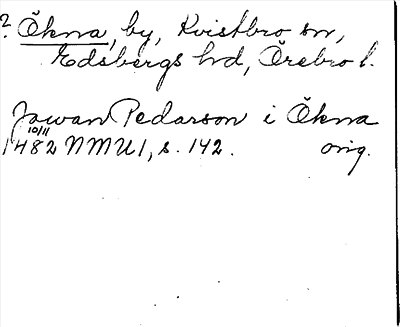 ? Ökna, by, Kvistbro sn,
Edsbergs hd, Örebro l.
Jowan Pedarson i Ökna
10/11
1482 NMU 1, s. 142. orig.